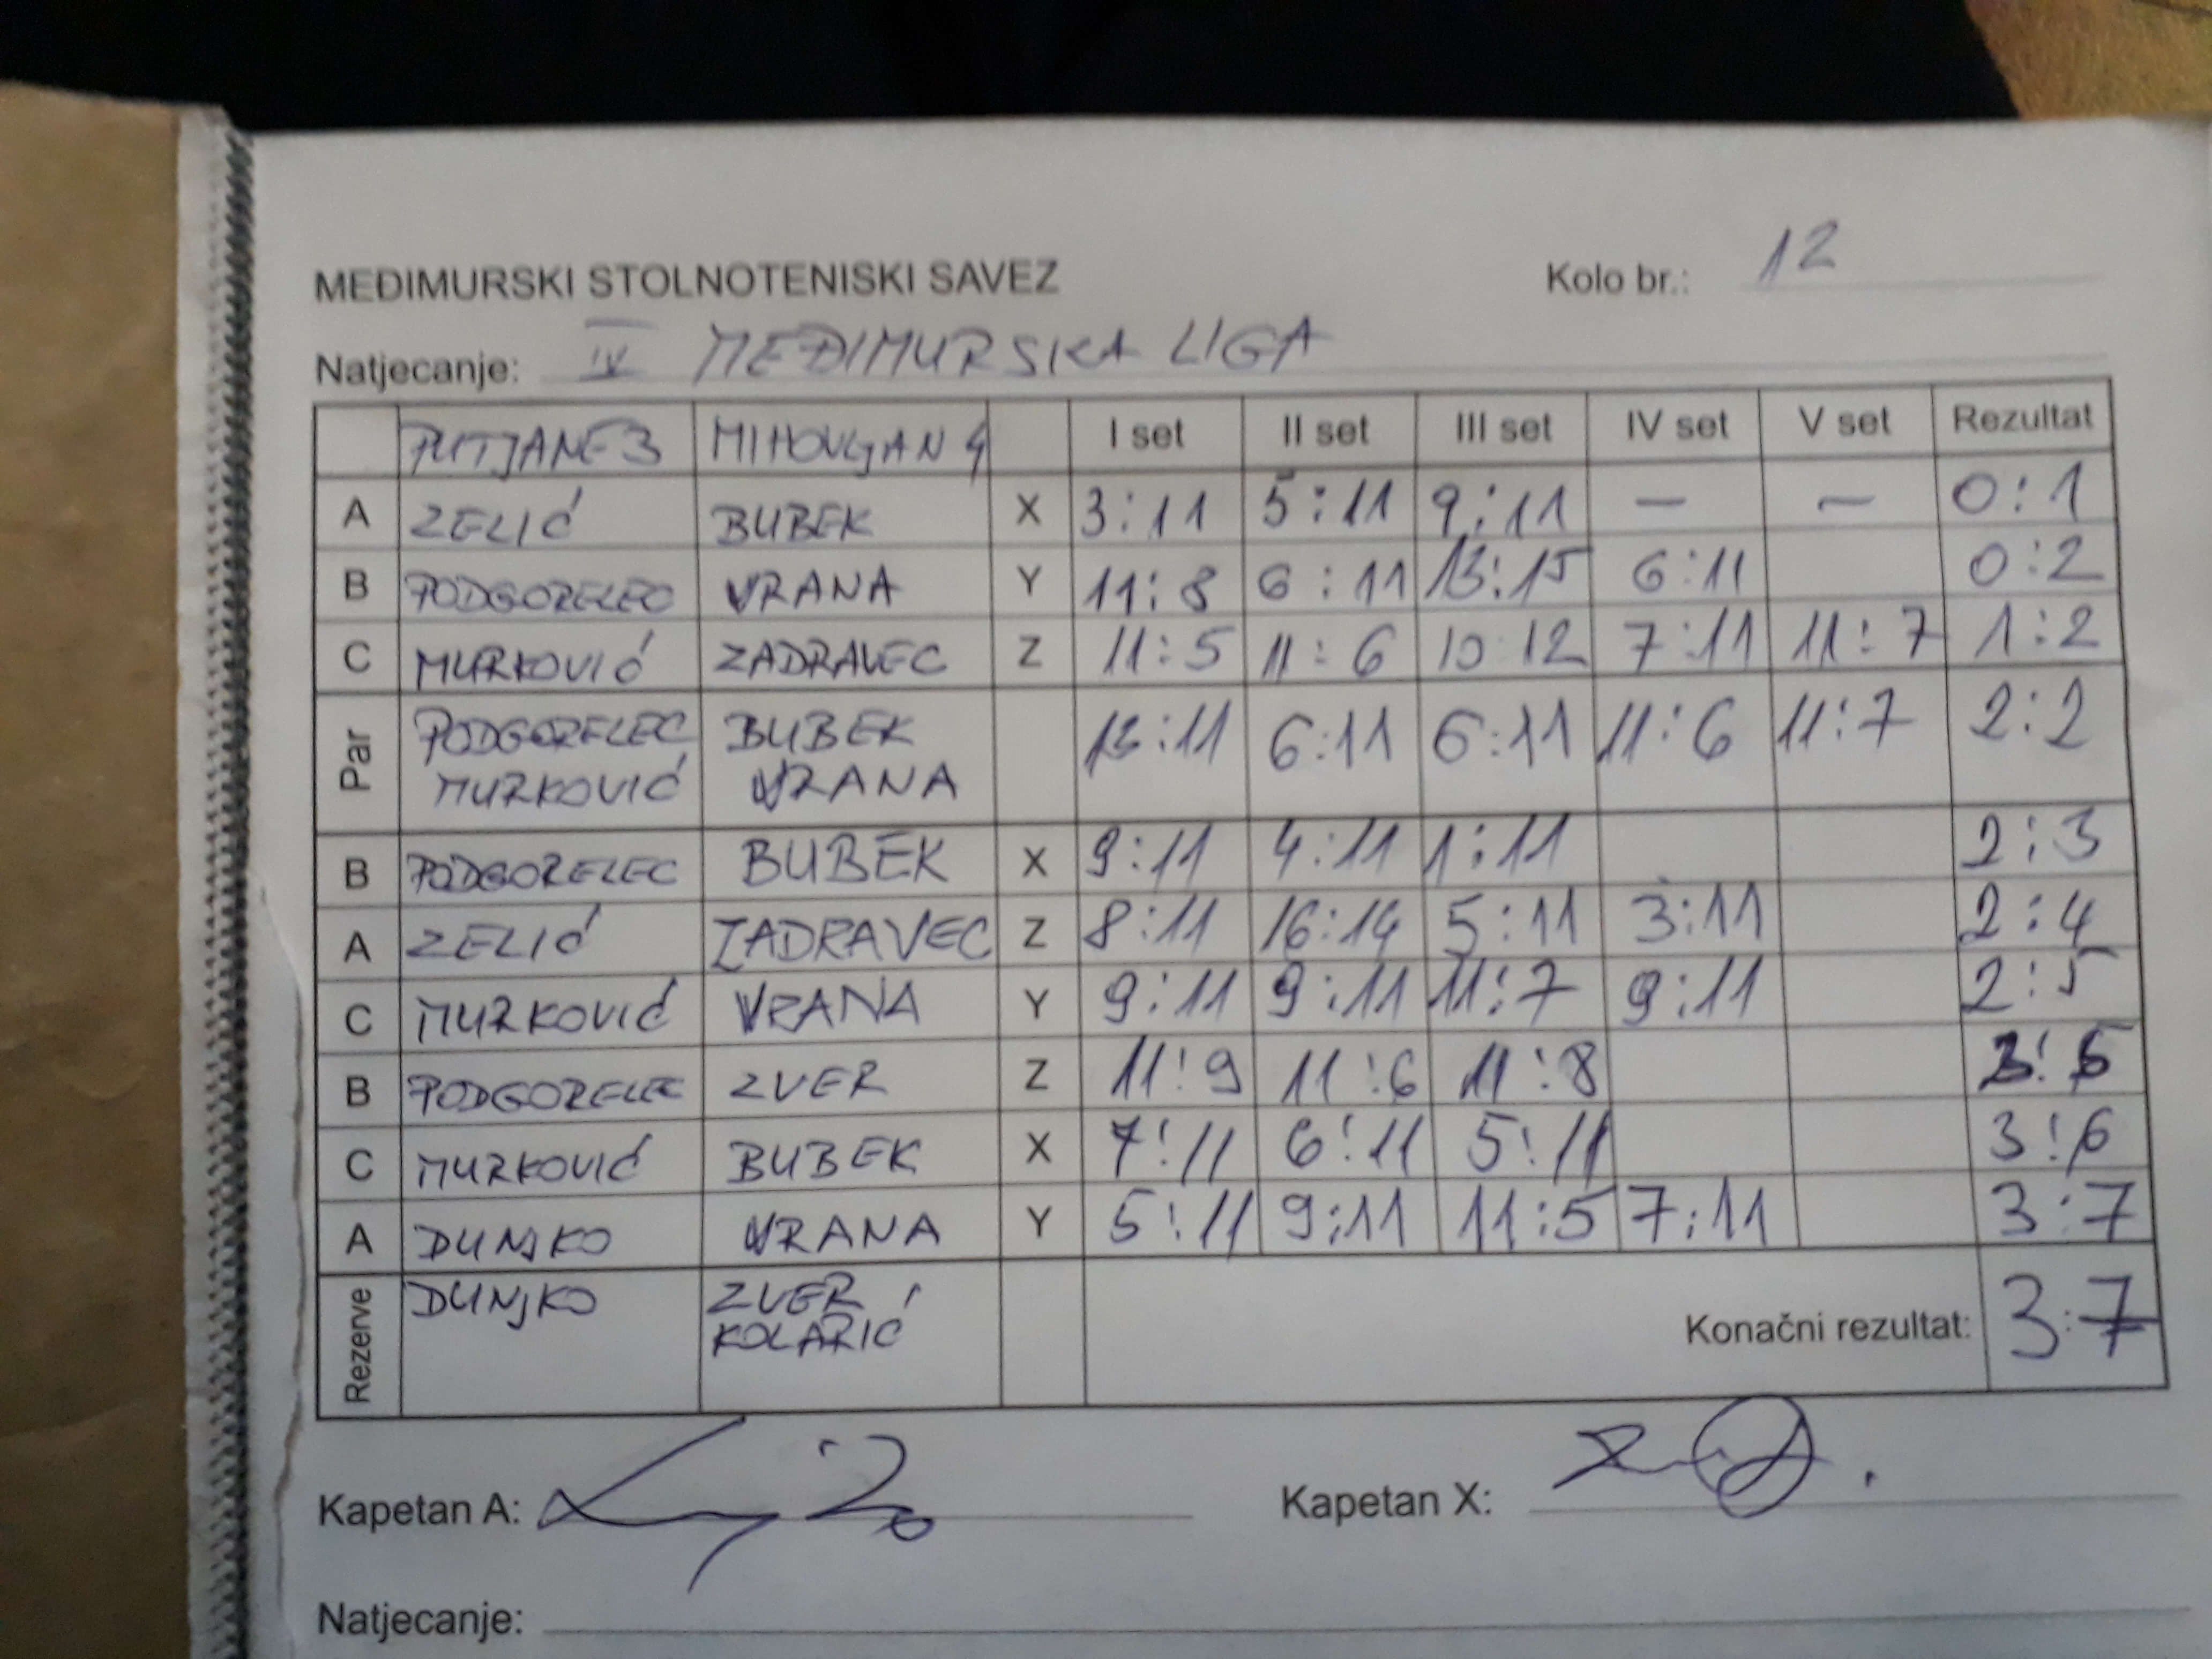 MEĐIMURSKI STOLNOTENISKI SAVEZ Kolo br.: 12
Natjecanje: IV MEĐIMURSKA LIGA
PUTJANE 3 MIHOVLJAN 4 I set II set III set IV set V set Rezultat
A ZELIĆ BUBEK X 3:11 5:11 9:11 — — 0:1
B PODGORELEC VRANA Y 11:8 6:11 13:15 6:11 0:2
C MURKOVIĆ ZADRAVEC Z 11:5 11:6 10:12 7:11 11:7 1:2
Par PODGORELEC BUBEK 13:11 6:11 6:11 11:6 11:7 2:2
MURKOVIĆ VRANA
B PODGORELEC BUBEK X 9:11 4:11 1:11 2:3
A ZELIĆ ZADRAVEC Z 8:11 16:14 5:11 3:11 2:4
C MURKOVIĆ VRANA Y 9:11 9:11 11:7 9:11 2:5
B PODGORELEC ZVER Z 11:9 11:6 11:8 3:5
C MURKOVIĆ BUBEK X 7:11 6:11 5:11 3:6
A DUNJKO VRANA Y 5:11 9:11 11:5 7:11 3:7
Rezerve DUNJKO ZVER Konačni rezultat: 3:7
KOLARIĆ
Kapetan A: Kapetan X:
Natjecanje: